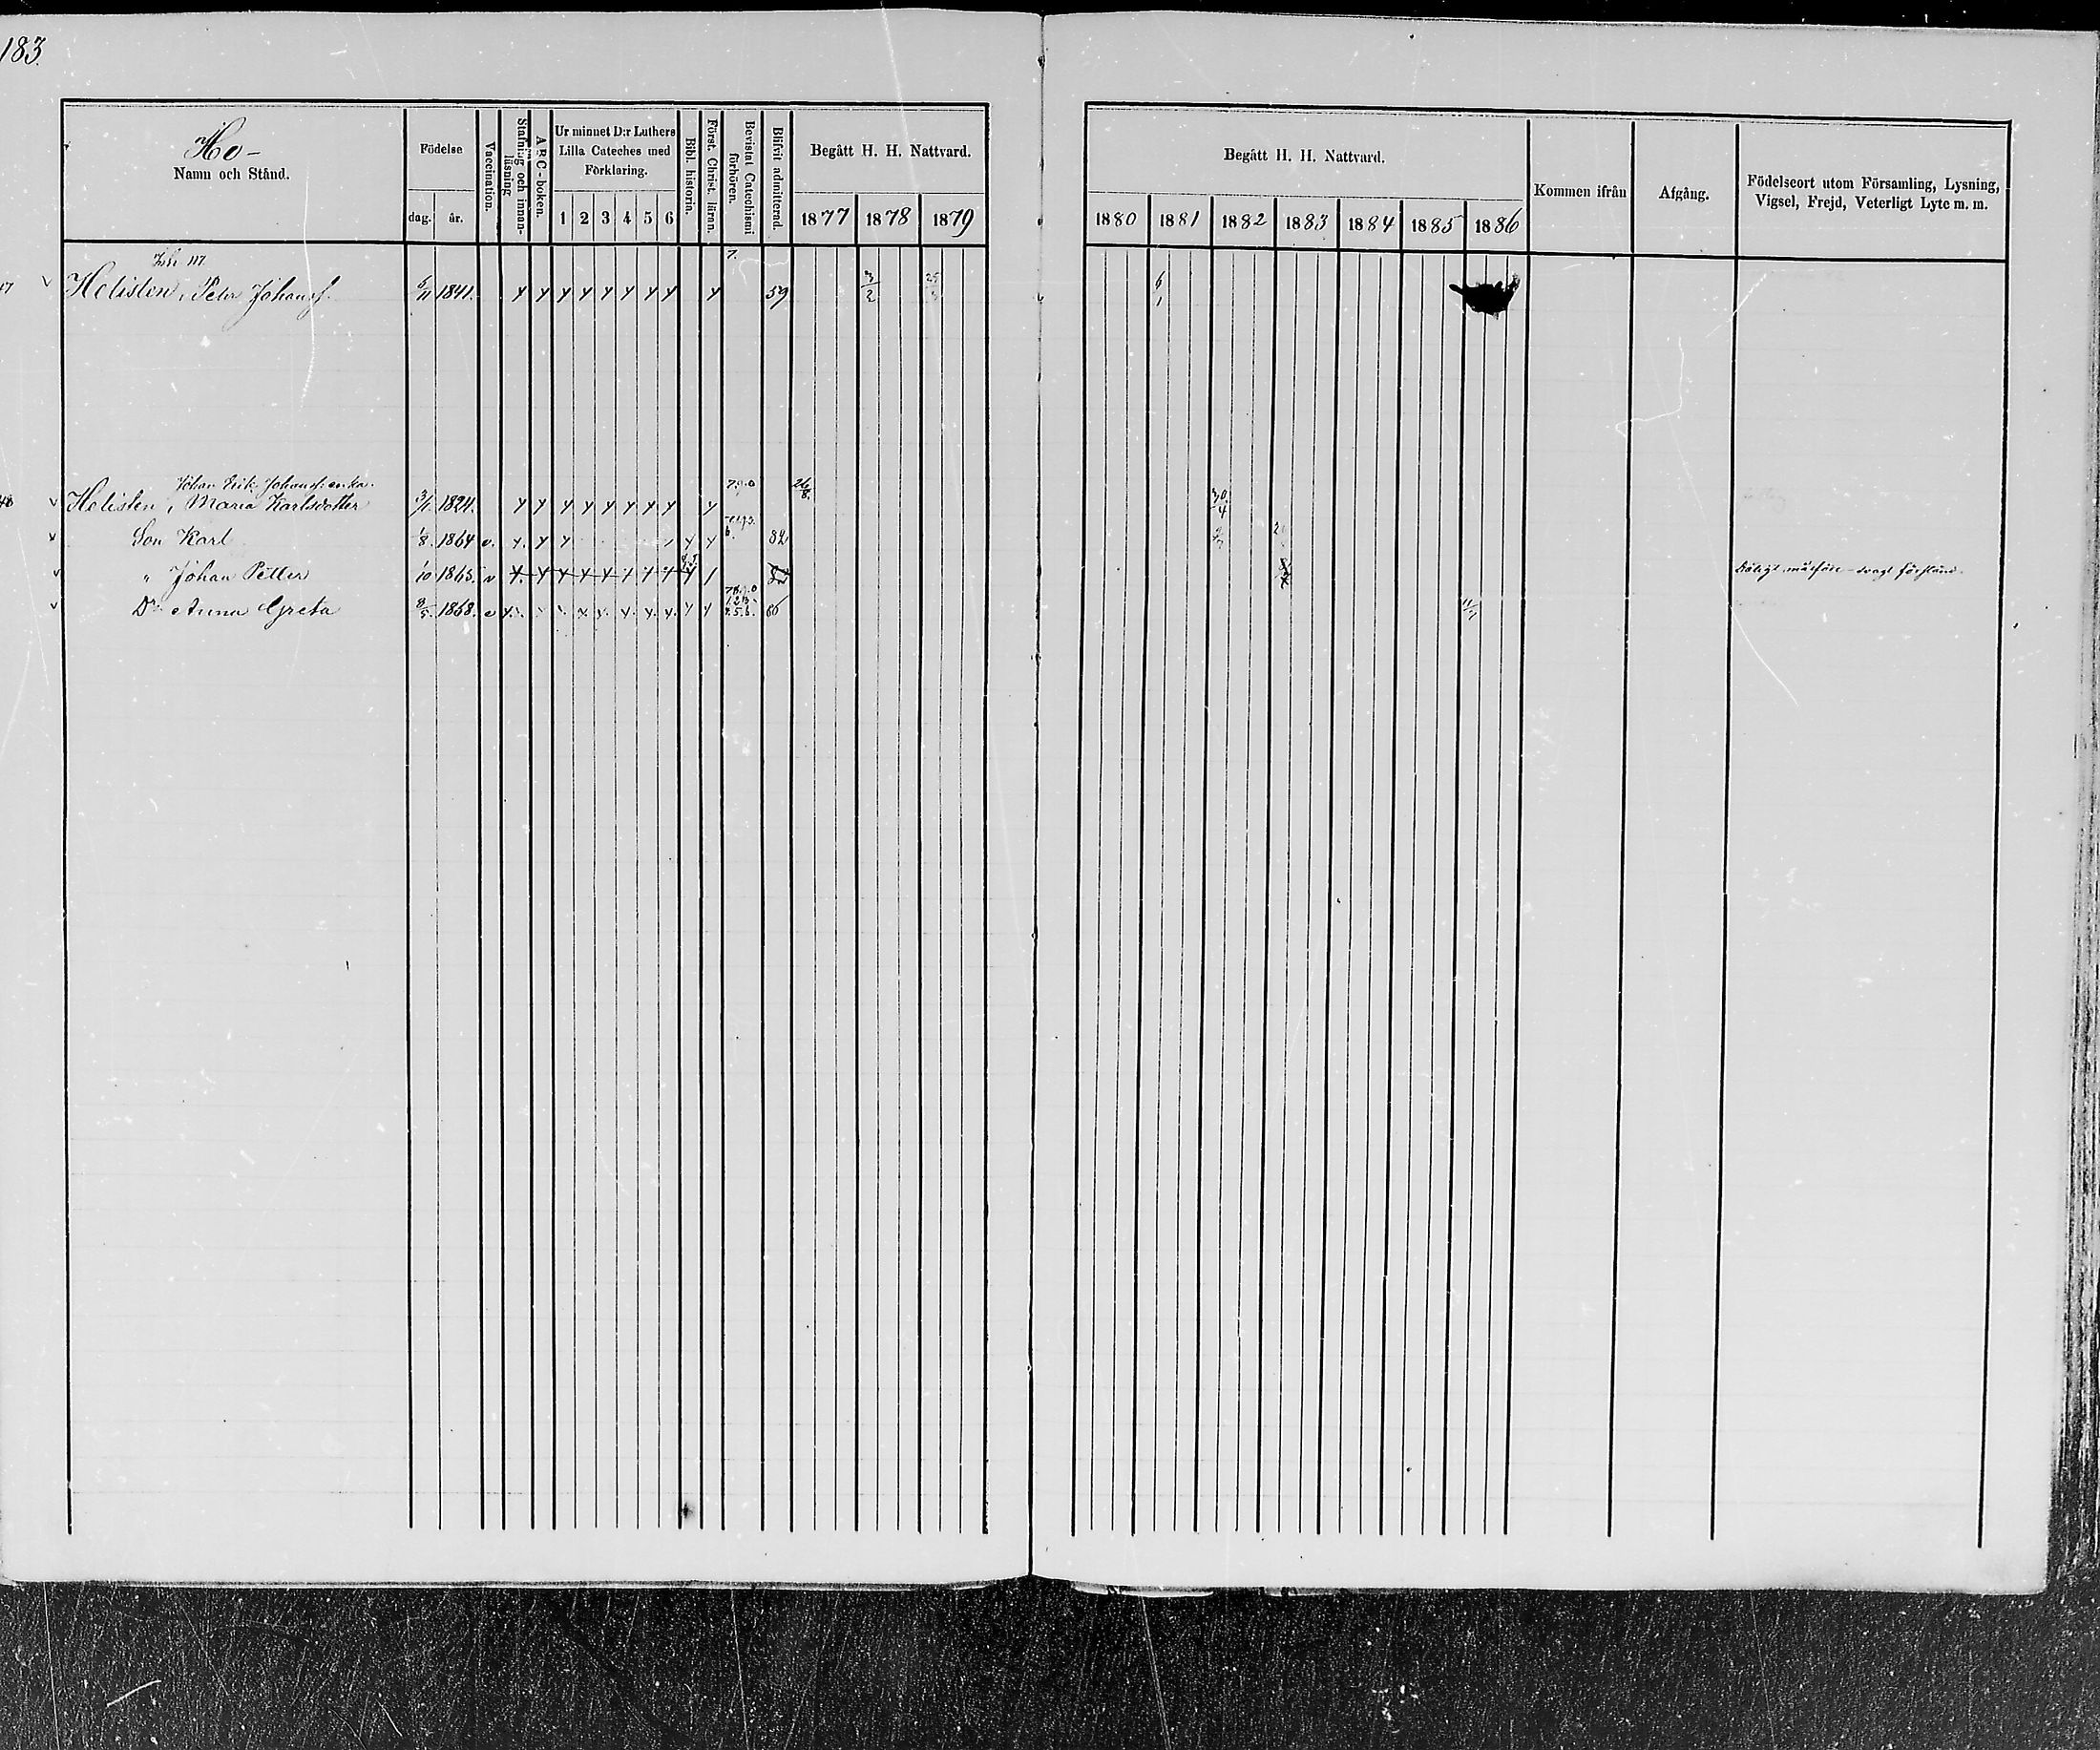 183.
Ho-
Namn och Stånd.
Födelse
dag. år.
Vaccination.
Stafning och innan-läsning
ABC-boken.
Ur minnet D:r Luthers
Lilla Cateches med
Förklaring.
1 2 3 4 5 6
Bibl. historia.
Först. Christ. läran.
Bevistat Catechismi förhören.
Blifvit admitterad.
Begått H. H. Nattvard.
1877 1878 1879
Begått H. H. Nattvard.
1880 1881 1882 1883 1884 1885 1886
Kommen ifrån
Afgång.
Födelseort utom Församling, Lysning,
Vigsel, Frejd, Veterligt Lyte m. m.
7.
Helisten, Peter Johanss. 6/11 1841. 59 3/2 6/1
Johan Erik Johanss: enka. 7.9.0 26/8.
Helisten, Maria Karlsdotter 3/1 1824. 30/4
Son Karl 1/8. 1864 v. 82
" Johan Petter 1/10 1865. v
Dr Anna Greta 8/5. 1868. v 86 11/7